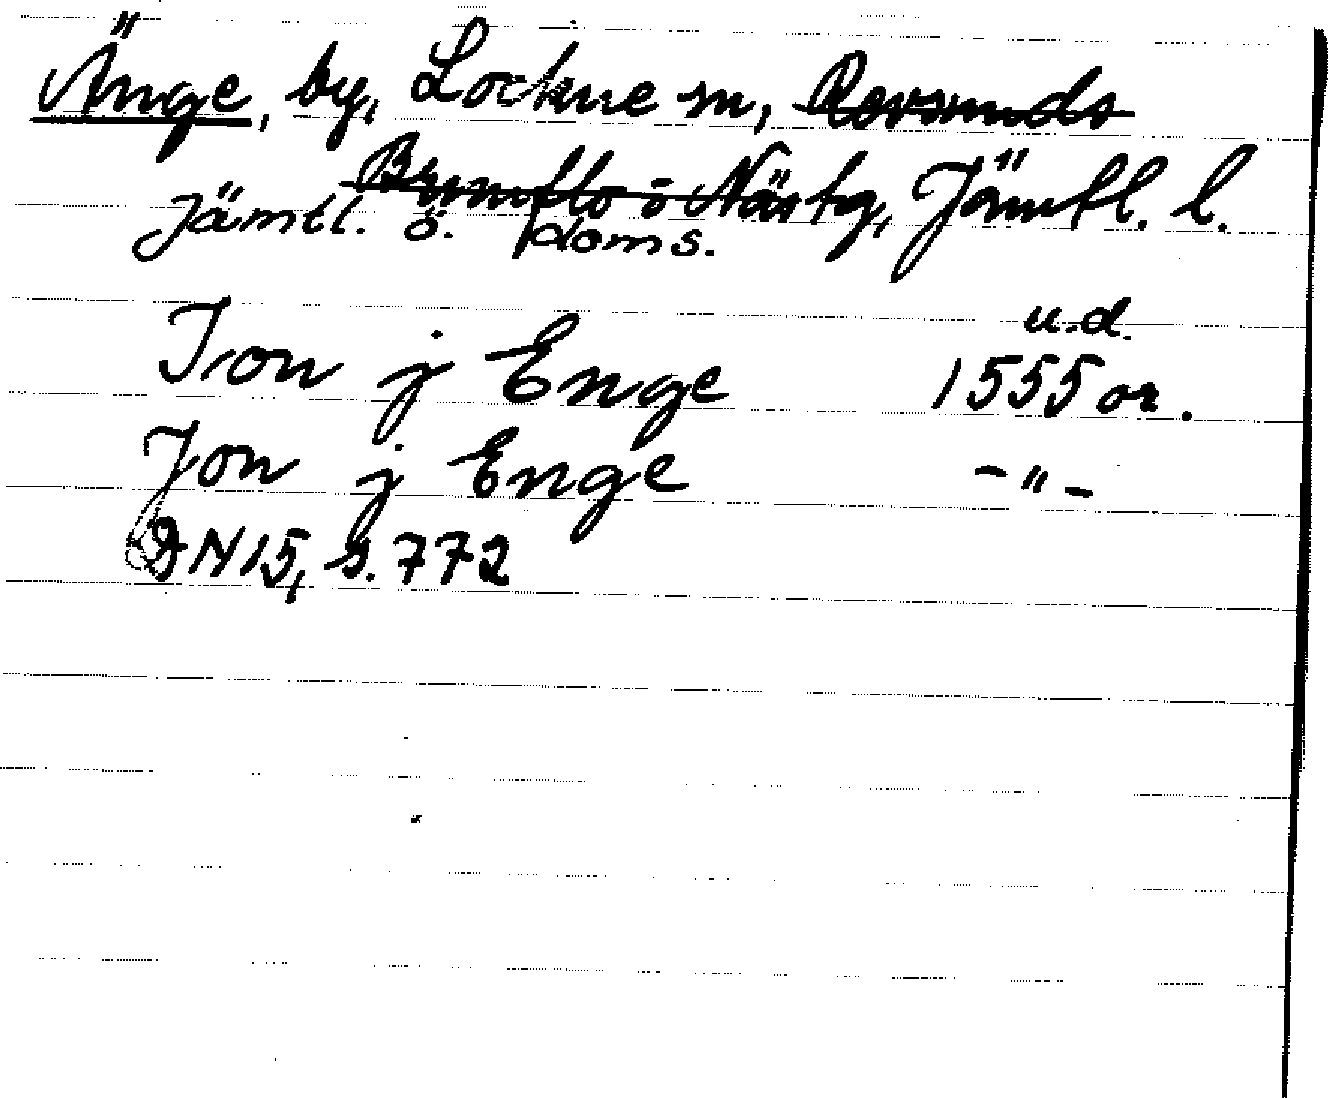 Änge, by, Lockne sn, Revsunds
Brunflo o Näs tg, Jämtl. l.
Jämtl. ö. doms.
u.d.
Jron j Enge 1555 or.
Jon j Enge -"-
DN 15, s. 772